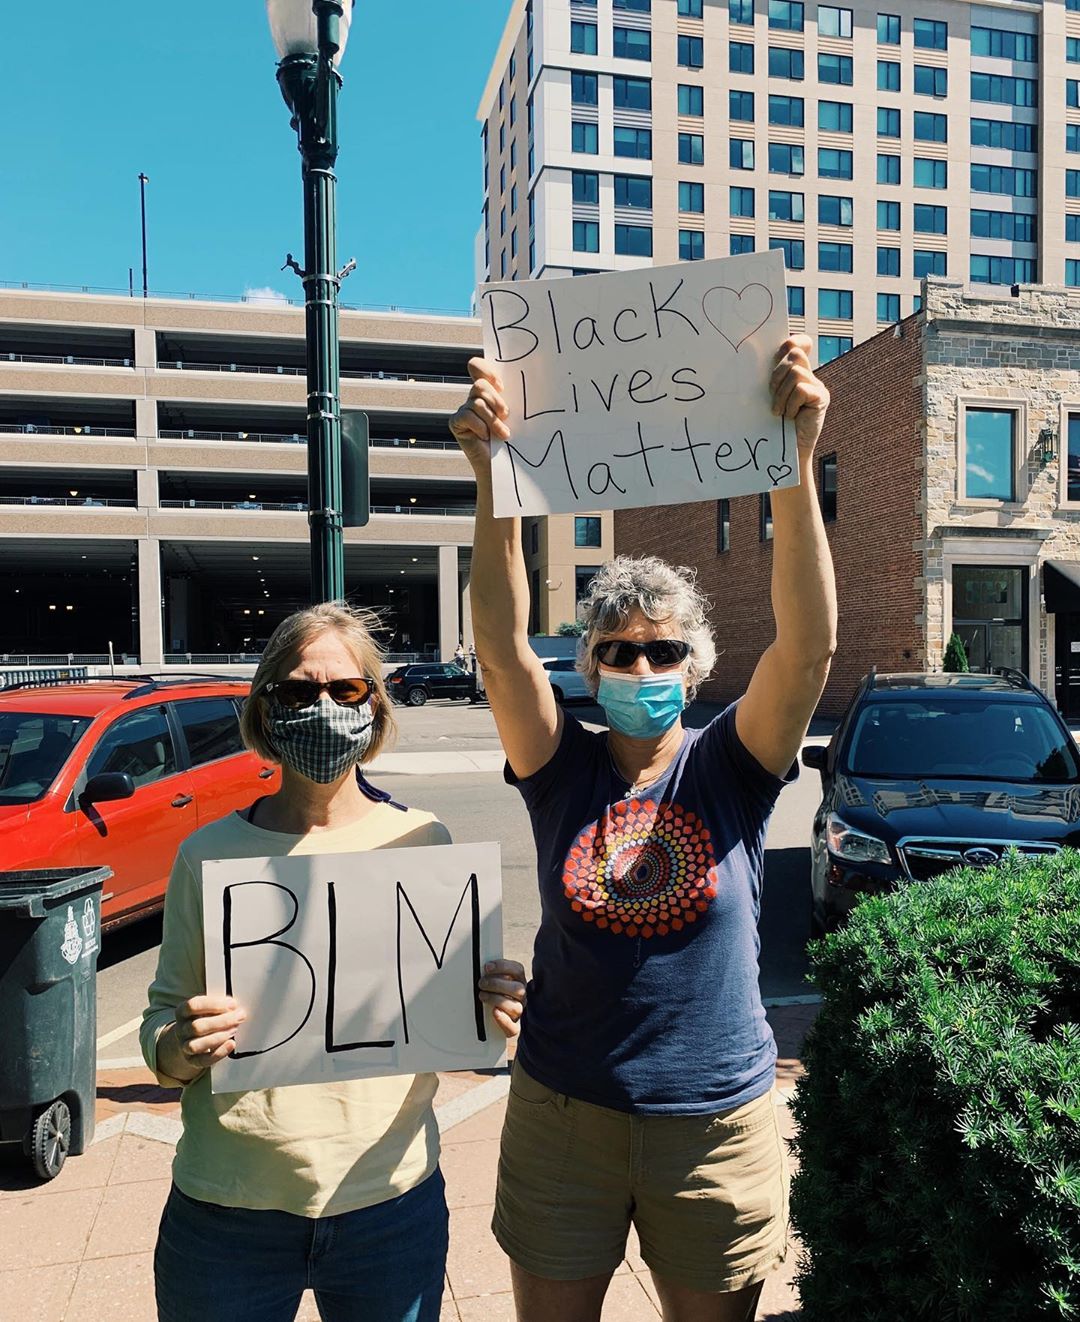 Black
Lives
Matter!
BLM